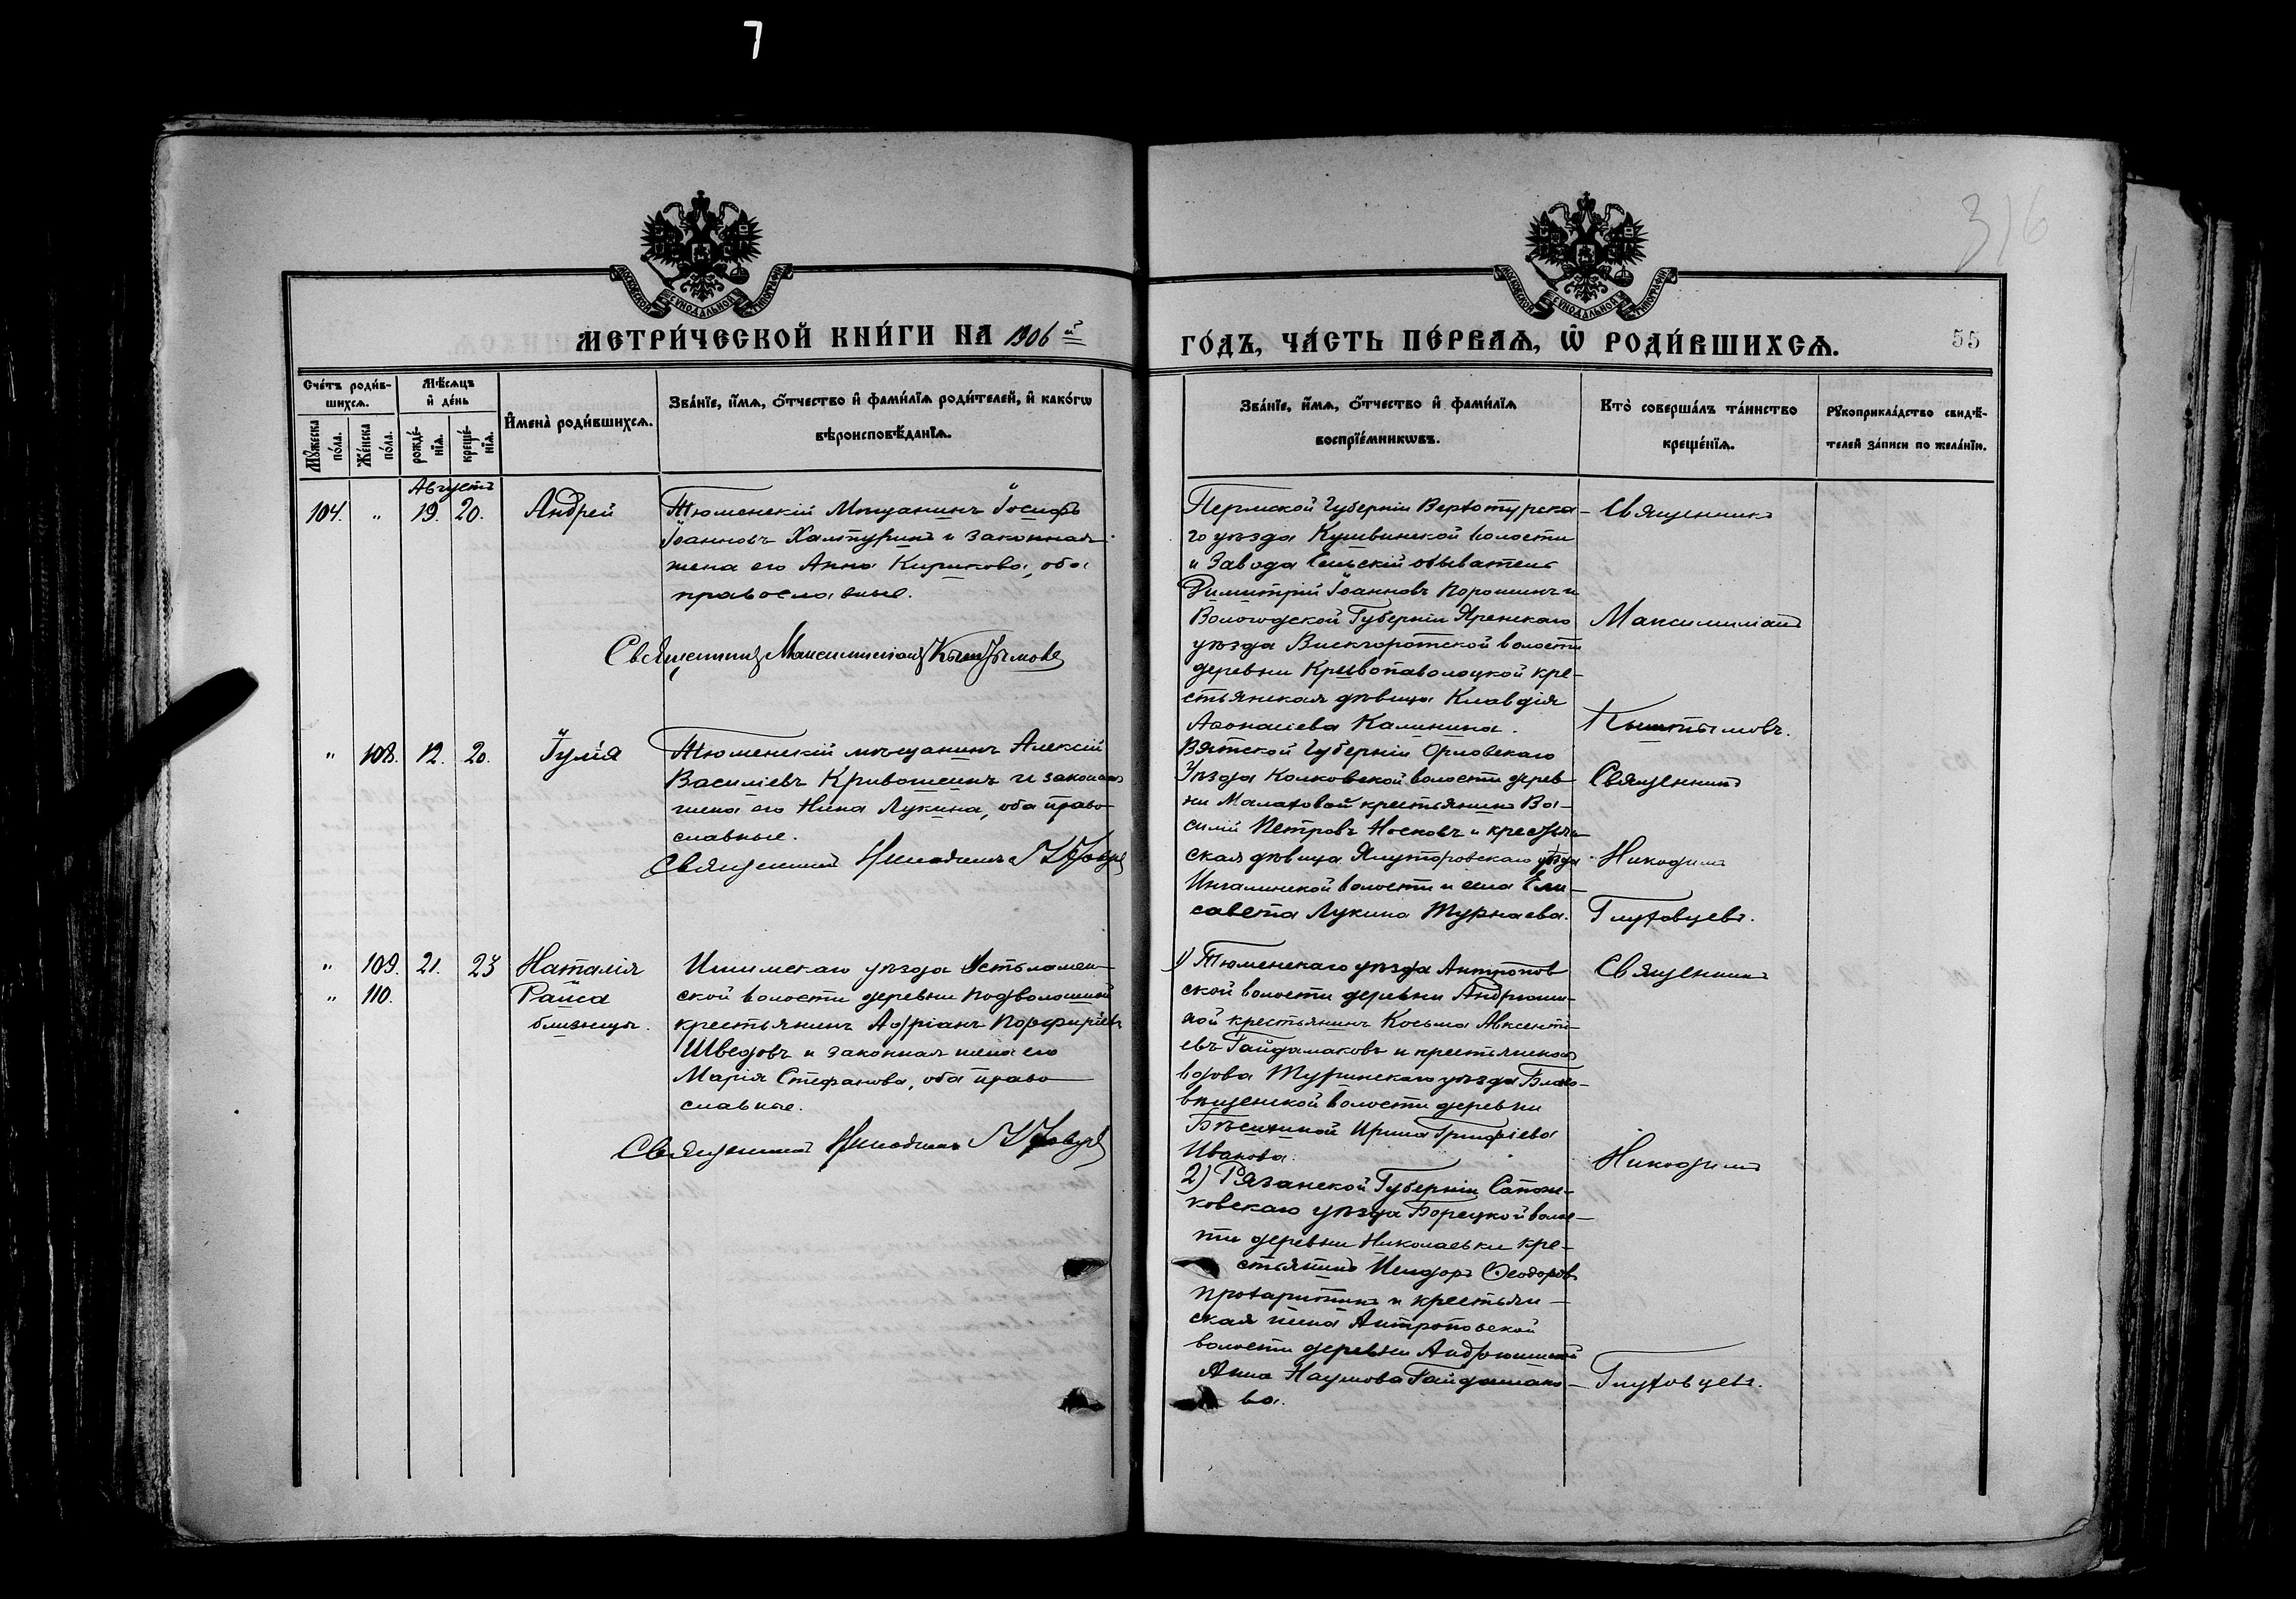 7
316
МЕТРИ́ЧЕСКОЙ КНИ́ГИ НА 1906 й
ГО́ДЪ, ЧА́СТЬ ПЕ́РВАѦ, Ѡ҆ РОДИ́ВШИХСѦ.
55
Сче́тъ роди́в-
шихсѧ.
Мѣ́сѧцъ
и҆ де́нь
Мꙋ́жеска
по́ла.
Же́нска
по́ла.
рожде́-
нїѧ.
креще́-
нїѧ.
И҆мена̀ роди́вшихсѧ.
Зва́нїе, и҆́мѧ, ѻ҆́тчество и҆ фами́лїѧ роди́телей, и҆ како́гѡ
вѣроисповѣ́данїѧ.
Зва́нїе, и҆́мѧ, ѻ҆́тчество и҆ фами́лїѧ
воспрїе́мникѡвъ.
Кто̀ соверша́лъ та́инство
креще́нїѧ.
Рꙋкоприкла́дство свидѣ́-
телей за́писи по жела́нїю.
Августъ
104. " 19. 20. Андрей
Тюменскій Мѣщанинъ Іосифъ
Іоанновъ Халтуринъ и законная
жена его Анна Кирикова, оба
православные.
Священникъ Максимиліанъ Кыштымовъ
Пермской Губерніи Верхотурска-
го уѣзда Кушвинской волости
и Завода Сельскій обыватель
Димитрій Іоанновъ Порошинъ и
Вологодской Губерніи Яренскаго
уѣзда волости
деревни Кривопаволоцкой кре-
стьянская дѣвица Клавдія
Аѳонасіева Калинина.
Священникъ
Максимиліанъ
Кыштымовъ.
" 108. 12. 20. Іулія
Тюменскій мѣщанинъ Алексій
Василіевъ Кривошеинъ и законная
жена его Нина Лукина, оба право-
славные.
Священникъ Никодимъ Глуховцевъ
Вятской Губерніи Орловскаго
Уѣзда Колковской волости дерев-
ни Малаховой крестьянинъ Ва-
силій Петровъ Носковъ и крестьян-
ская дѣвица Ялуторовскаго уѣзда
Ингалинской волости и села Ели-
савета Лукина Турнаева.
Священникъ
Никодимъ
Глуховцевъ.
" 109. 21. 23 Наталія
" 110. Раиса
близнецы.
Ишимскаго уѣзда Устьламен-
ской волости деревни Подволошной
крестьянинъ Адріанъ Порфиріевъ
Шведовъ и законная жена его
Марія Стефанова, оба право-
славные.
Священникъ Никодимъ Глуховцевъ
1) Тюменскаго уѣзда Антропов
ской волости деревни Андрюши-
ной крестьянинъ Косьма Авксенті-
евъ Гайдамаковъ и крестьянская
вдова Туринскаго уѣзда Благо-
вѣщенской волости деревни
Ирина
Иванова.
2) Рязанской Губерніи Сапож-
ковскаго уѣзда Борецкой волос-
ти деревни Николаевки кре-
стьянинъ Исидоръ Ѳеодоровъ
и крестьян-
ская жена Антроповской
волости деревни Андрюшиной
Анна Наумова Гайдамако-
ва.
Священникъ
Никодимъ
Глуховцевъ.